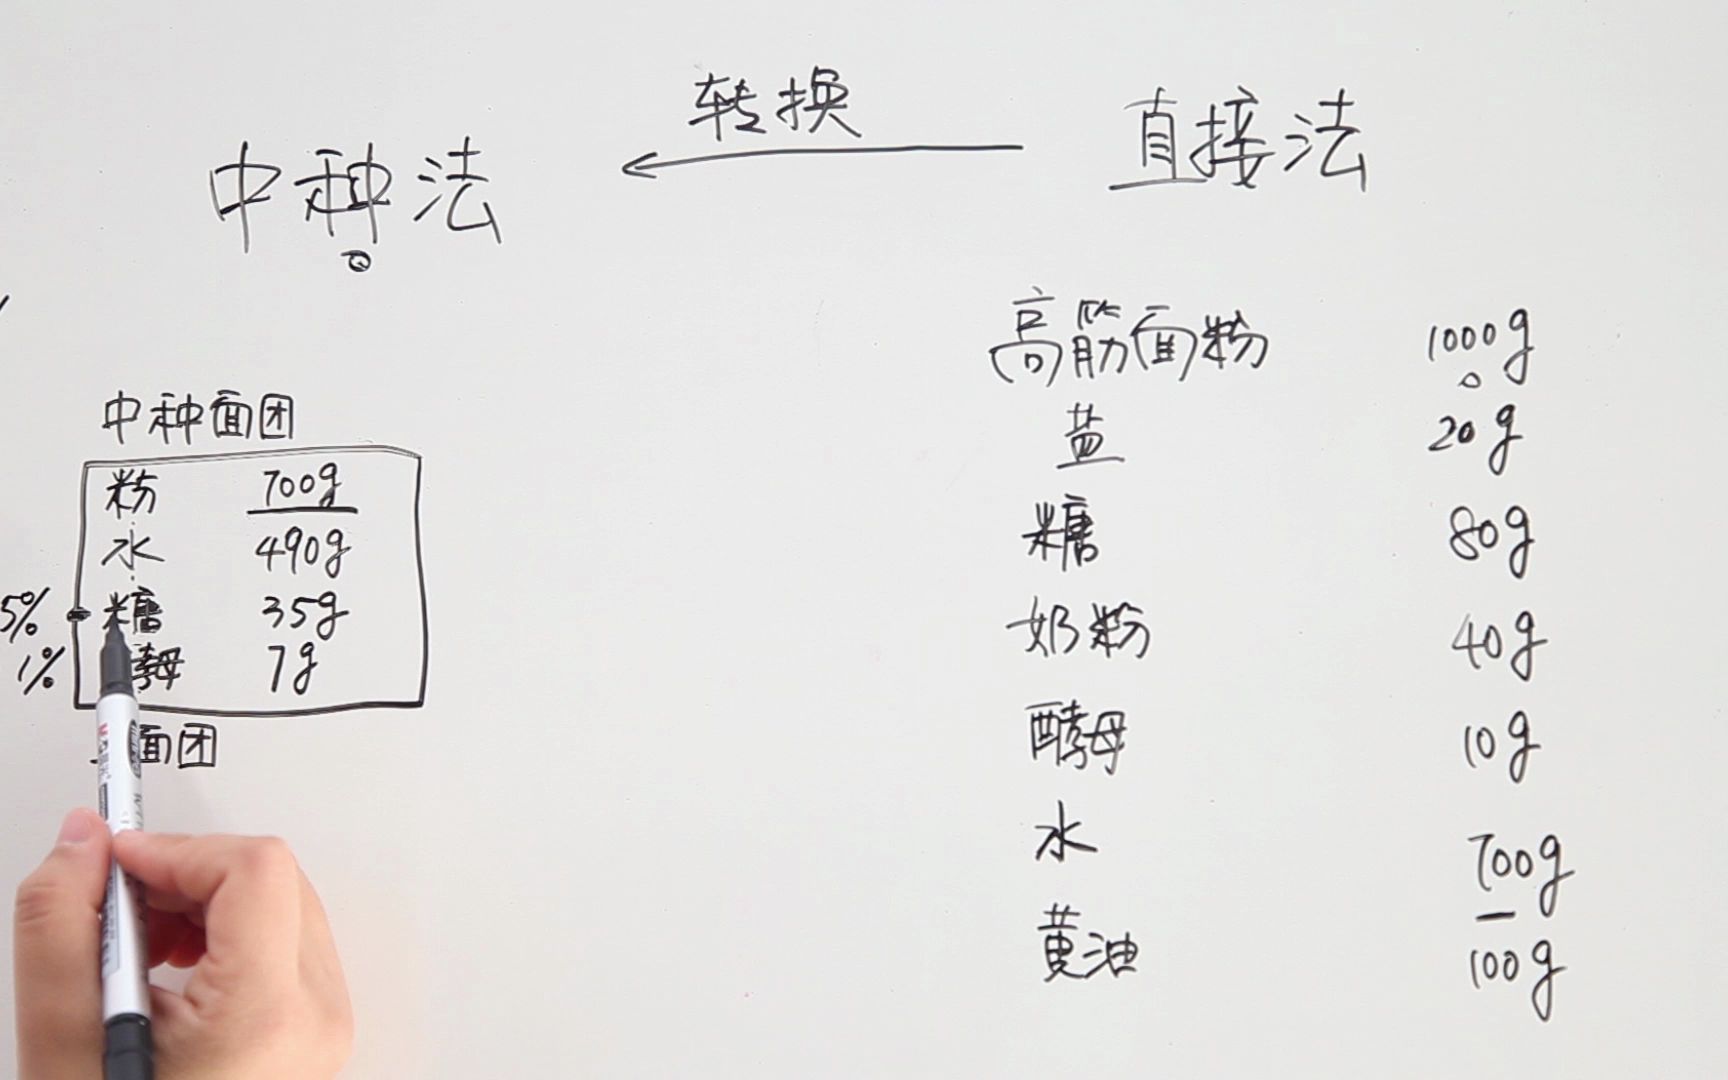 转换
直接法
中种法
高筋面粉 1000g
盐 20g
糖 80g
奶粉 40g
酵母 10g
水 700g
黄油 100g
中种面团
粉 700g
水 490g
5% 糖 35g
1% 母 7g
面团